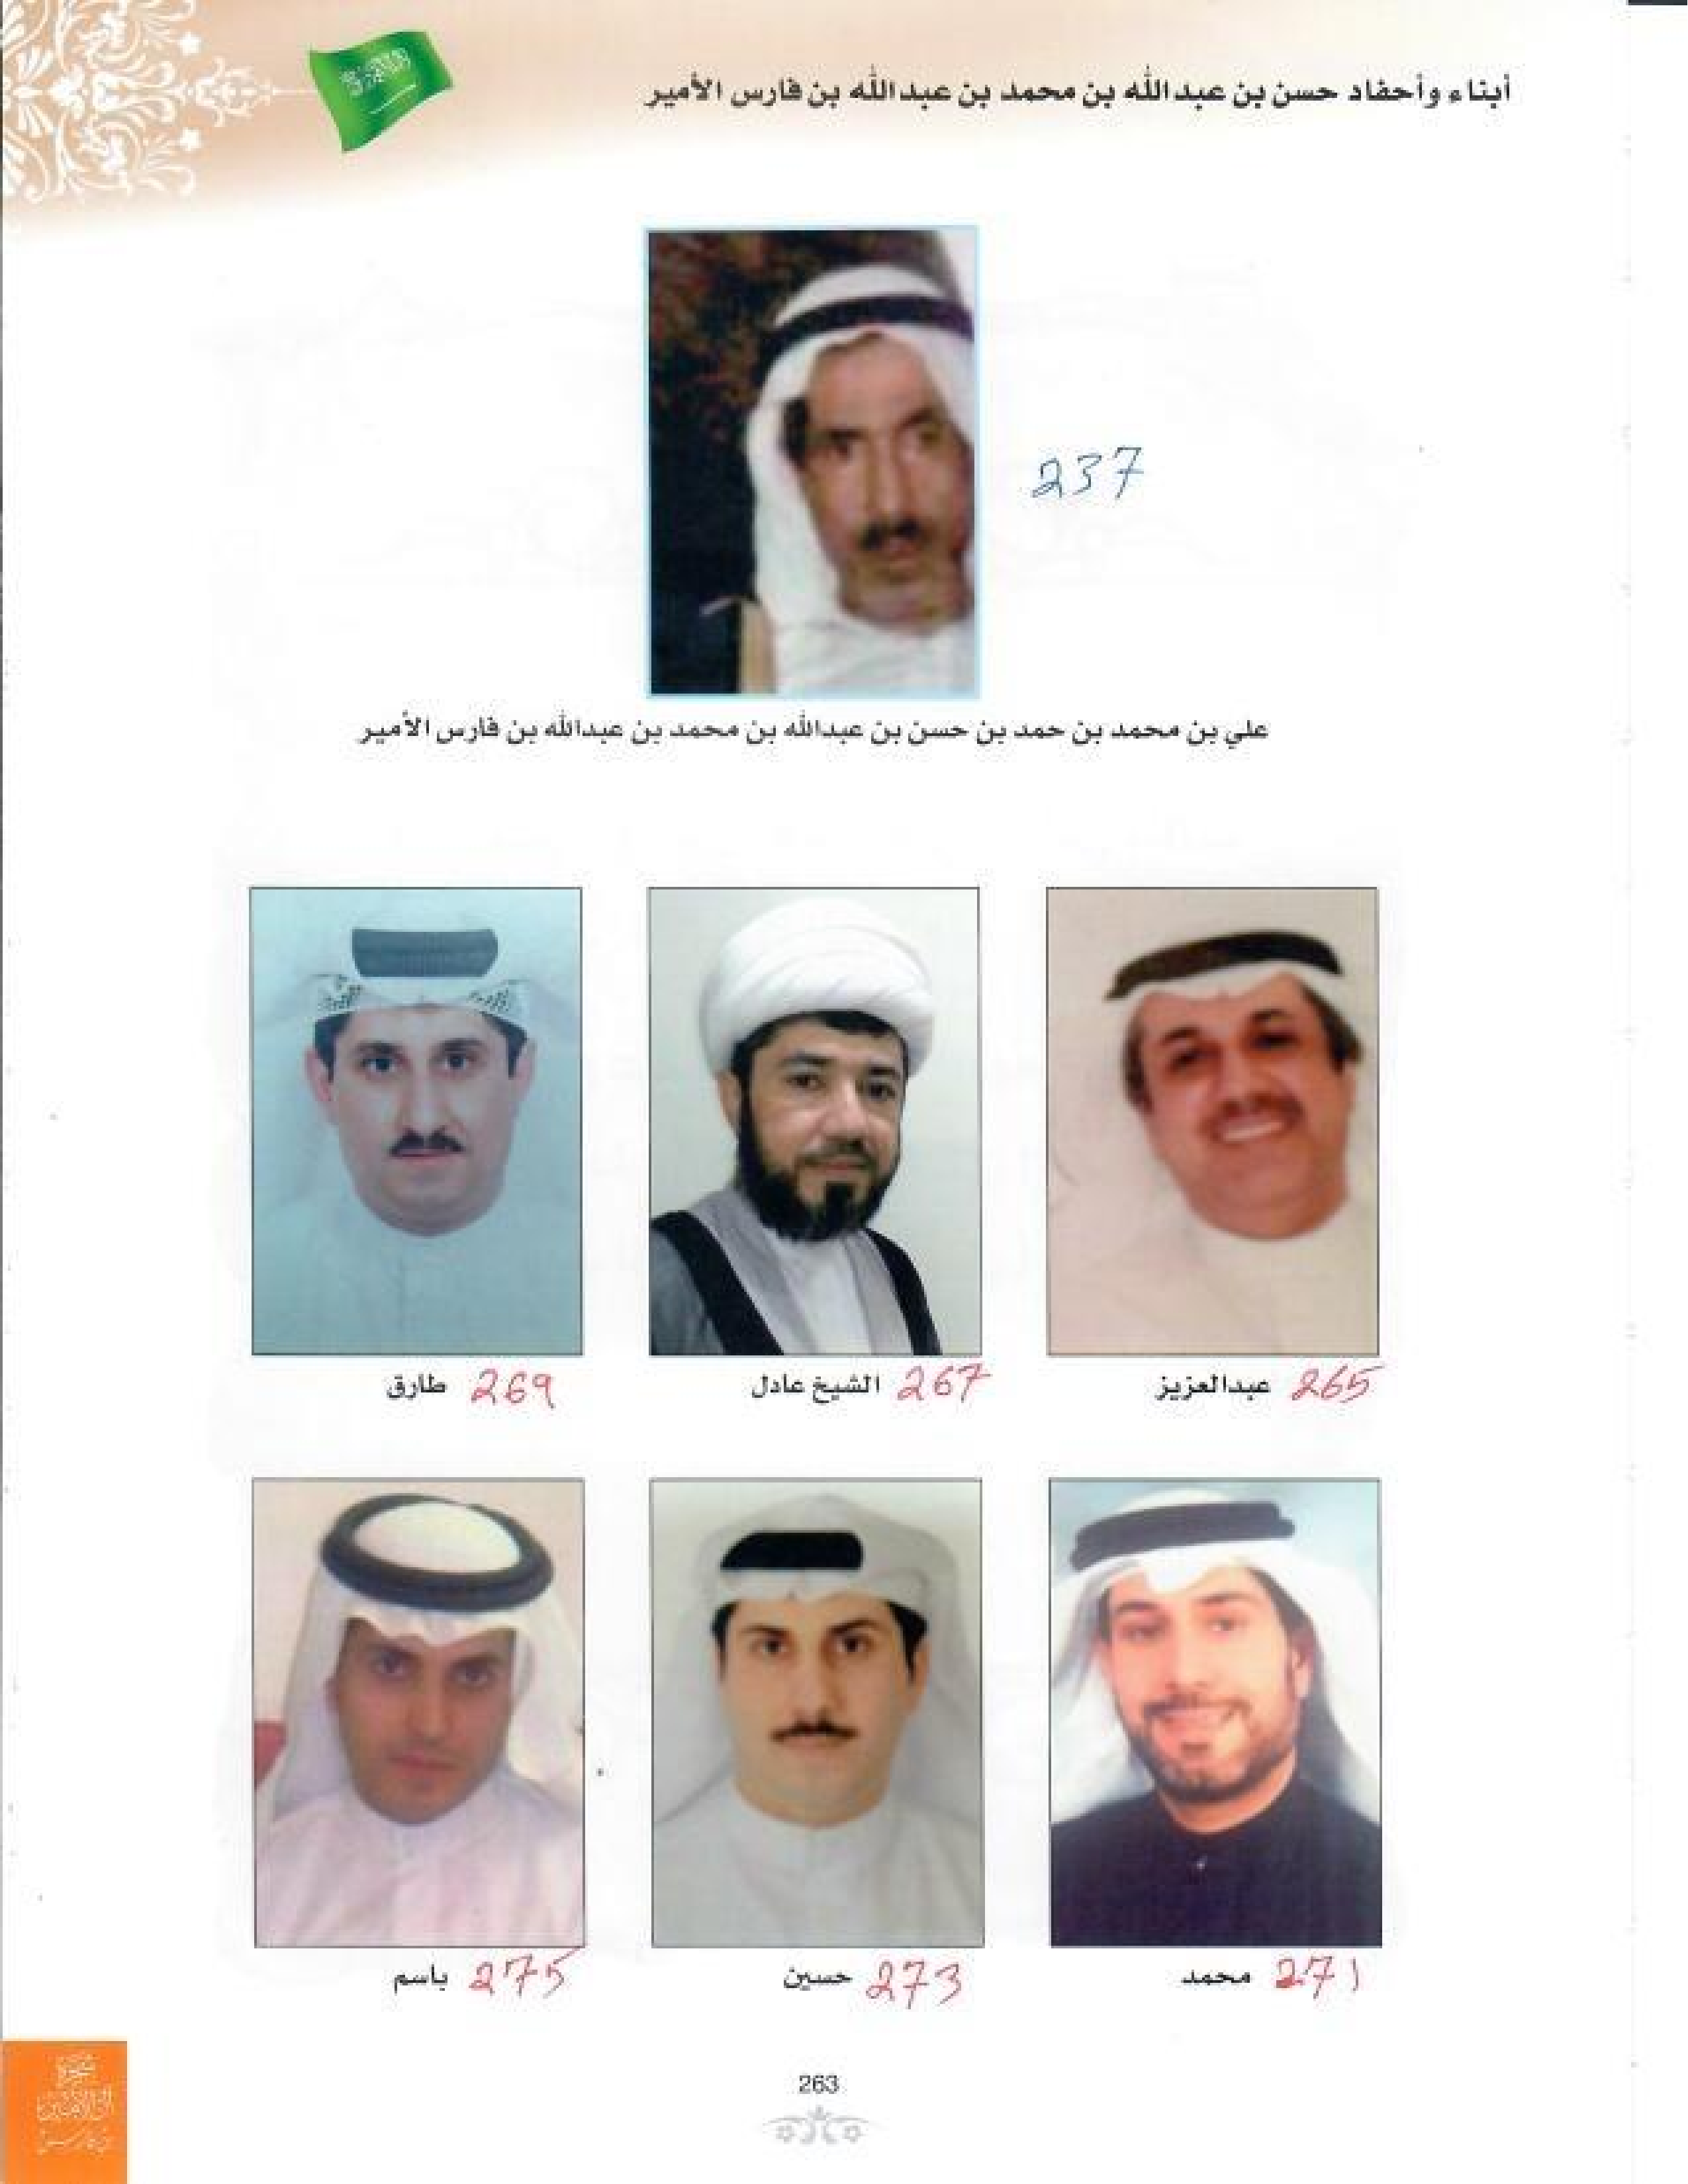 أبناء وأحفاد حسن بن عبدالله بن محمد بن عبدالله بن فارس الأمير
237
علي بن محمد بن حمد بن حسن بن عبدالله بن محمد بن عبدالله بن فارس الأمير
265 عبدالعزيز
267 الشيخ عادل
269 طارق
271 محمد
273 حسين
275 باسم
263